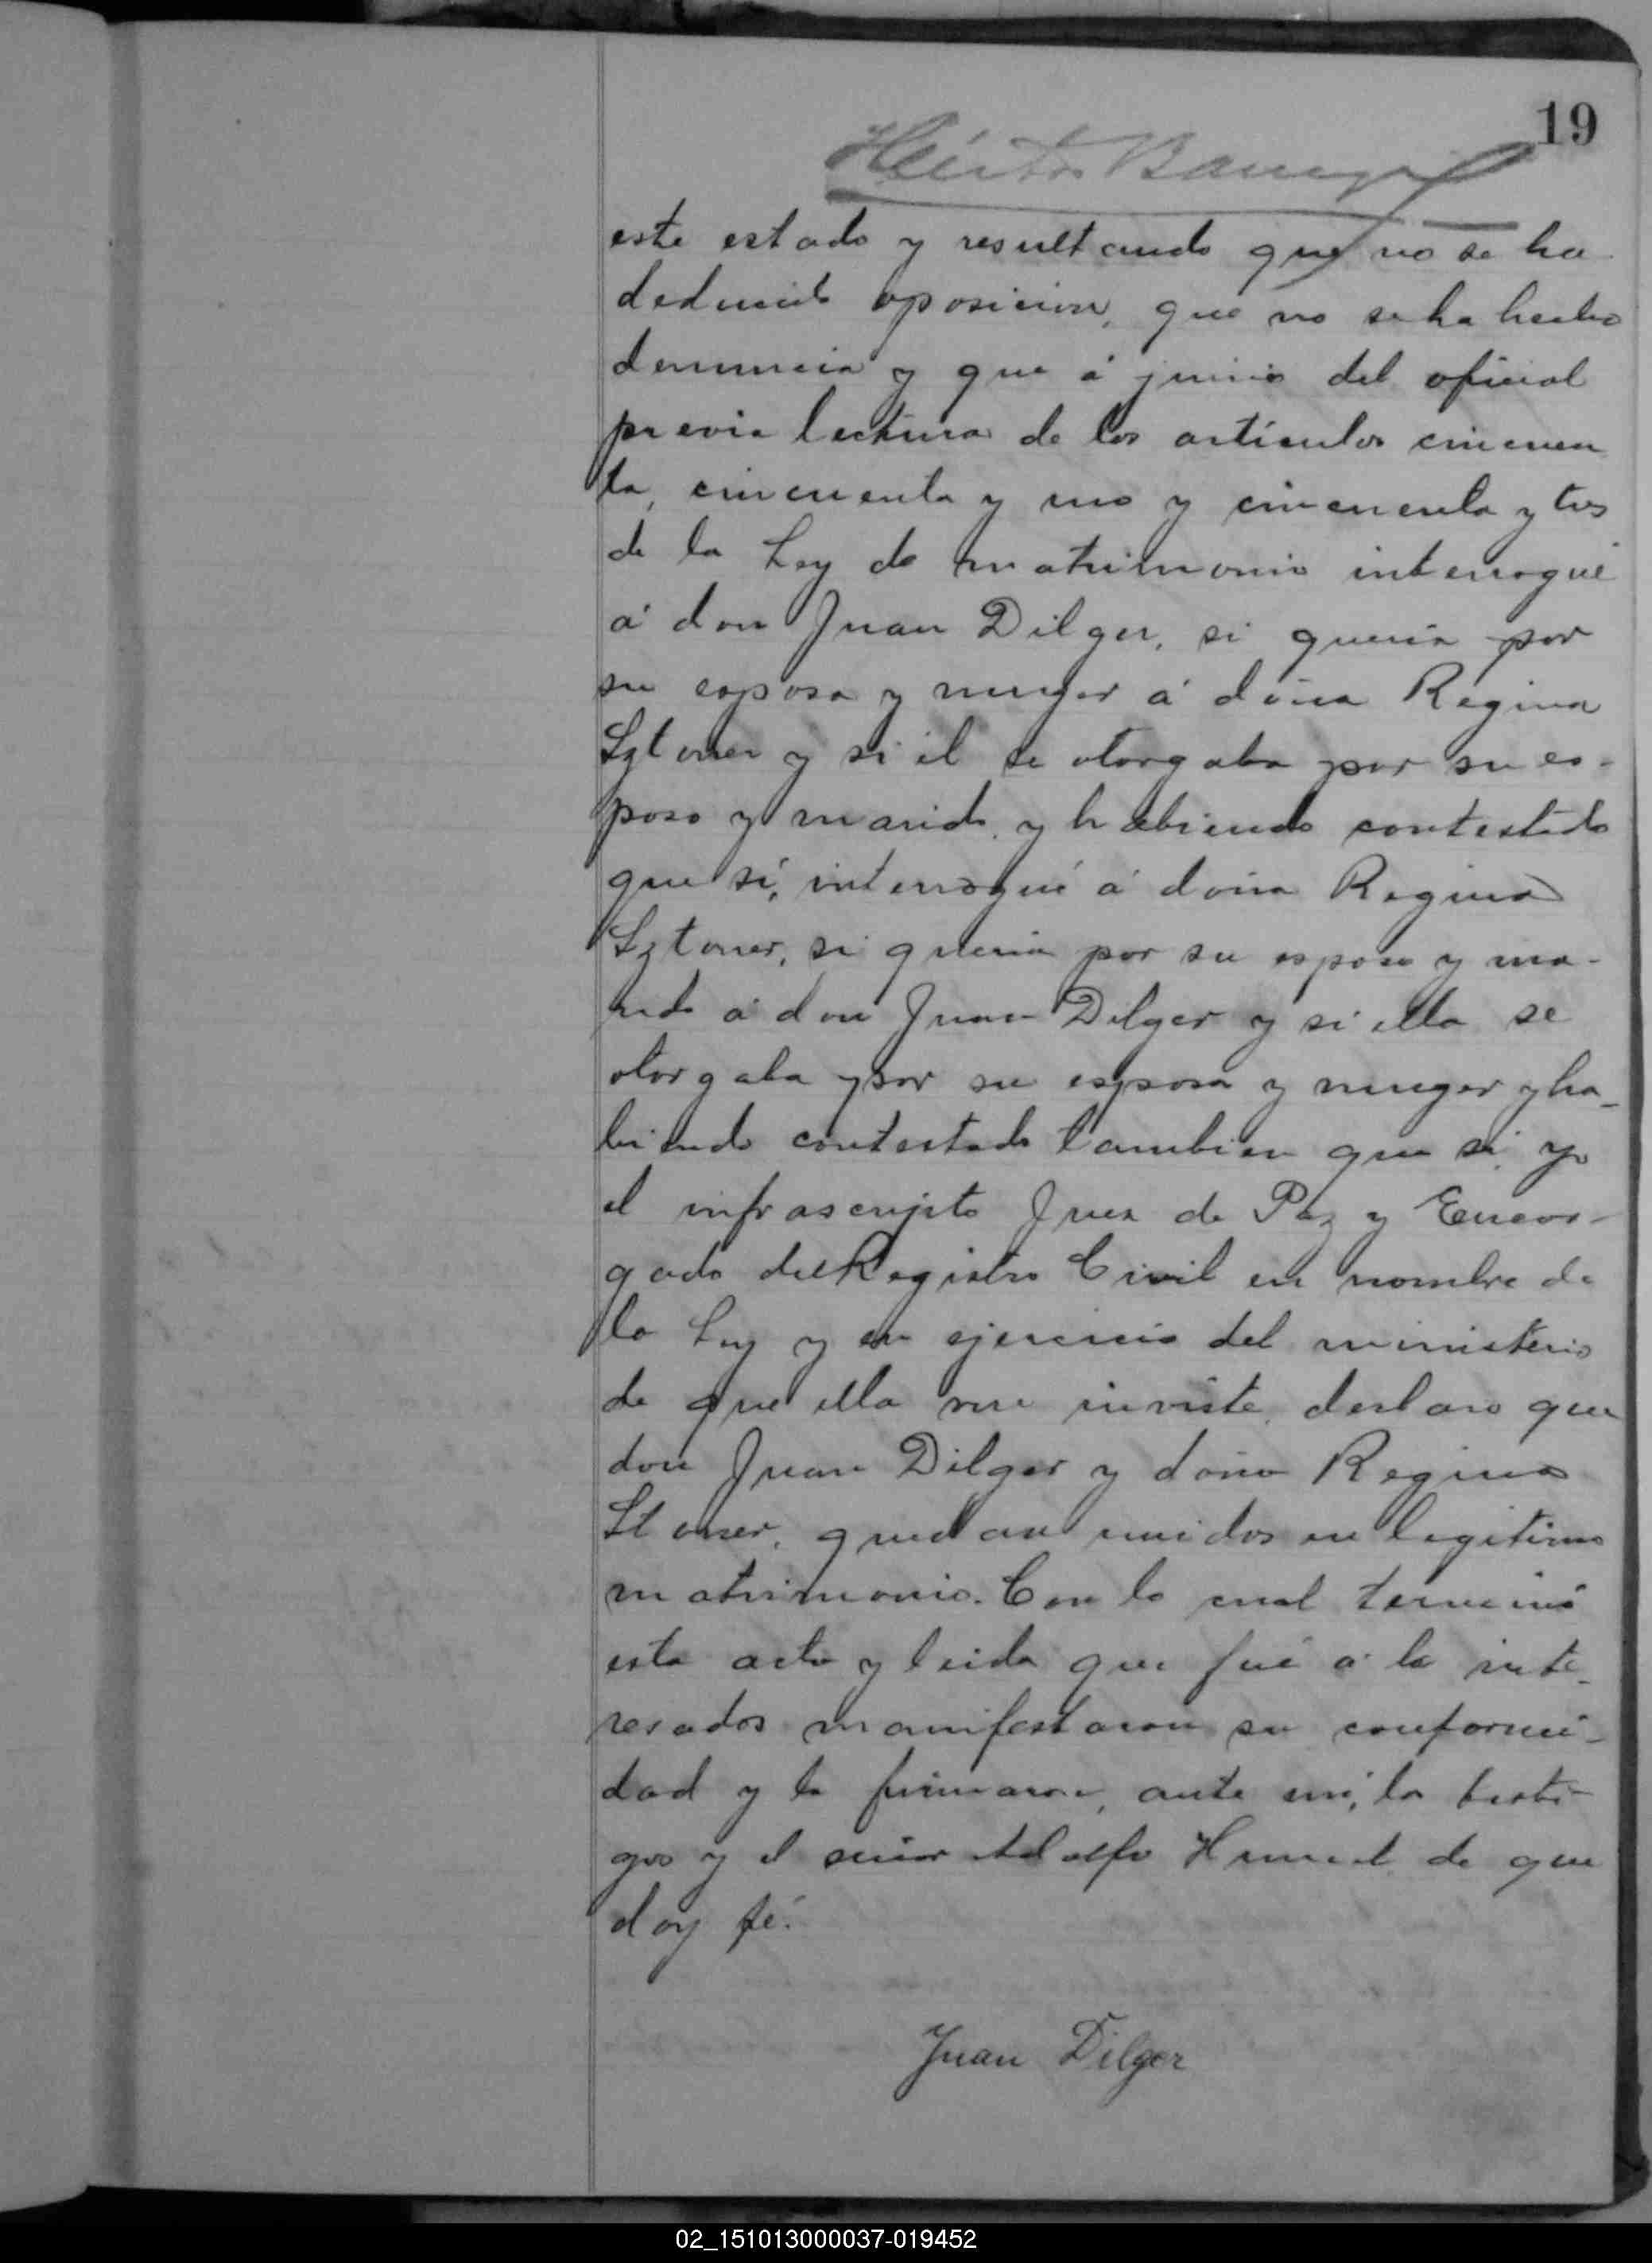 19
Héctor
este estado y resultando que no se ha
deducido oposicion, que no se ha hecho
denuncia y que á juicio del oficial
previa lectura de los artículos cincuen
ta, cincuenta y uno y cincuenta y tres
de la Ley de matrimonio interrogué
á don Juan Dilger, si queria por
su esposa y muger á doña Regina
Sztoner y si él se otorgaba por su es-
poso y marido, y habiendo contestado
que sí, interrogué á doña Regina
Sztoner, si queria por su esposo y ma-
rido á don Juan Dilger y si ella se
otorgaba por su esposa y muger y ha-
biendo contestado tambien que si, yo
el infrascripto Juez de Paz y Encar-
gado del Registro Civil en nombre de
la Ley y en ejercicio del ministerio
de que ella me inviste, declaro que
don Juan Dilger y doña Regina
Stoner, quedan unidos en legitimo
matrimonio. Con lo cual terminó
esta acta y leida que fué á los inte-
resados manifestaron su conformi-
dad y la firmaron, ante mi, los testi-
gos y el señor Adolfo de que
doy fé.
Juan Dilger
02_151013000037-019452